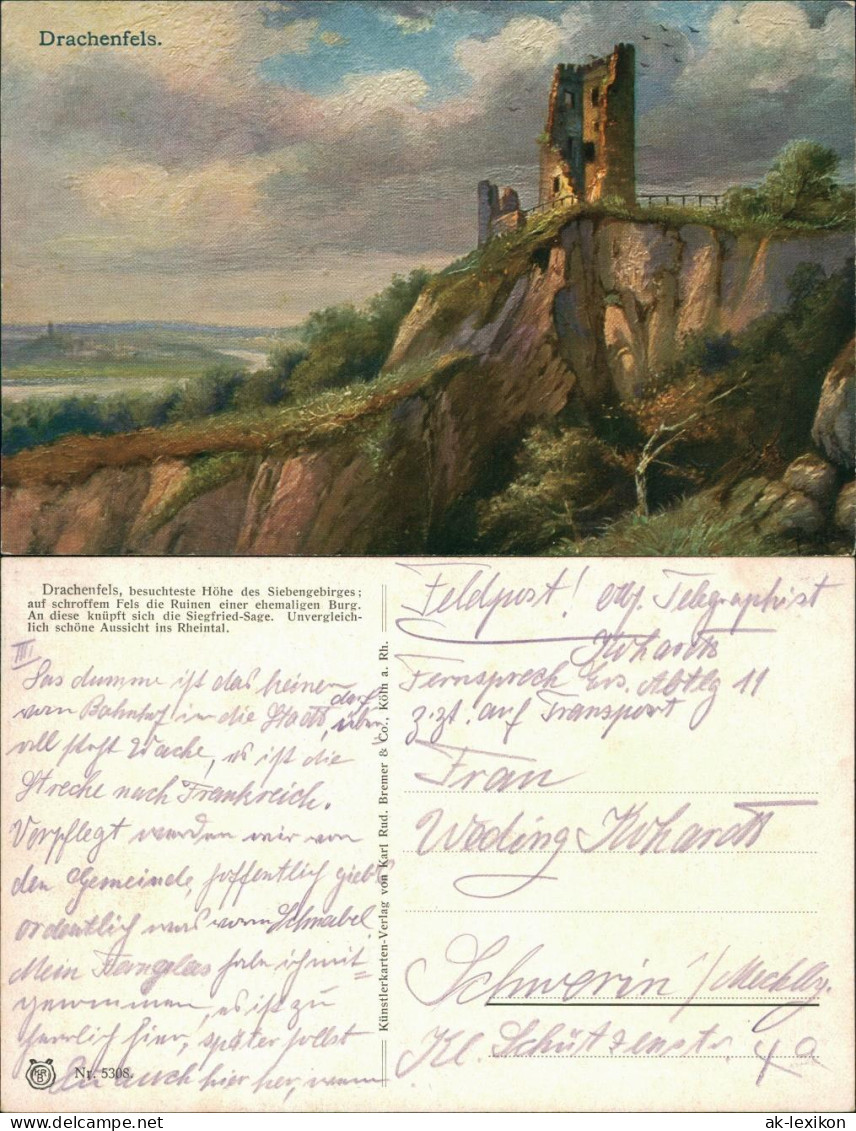 Drachenfels.
Drachenfels, besuchteste Höhe des Siebengebirges;
auf schroffem Fels die Ruinen einer ehemaligen Burg.
An diese knüpft sich die Siegfried-Sage. Unvergleich-
lich schöne Aussicht ins Rheintal.
III
Das dumme ist das keiner
vom Bahnhof in die Stadt darf, über
all steht Wache, es ist die
Strecke nach Frankreich.
Verpflegt werden wir von
den Gemeinde, hoffentlich giebts
ordentlich was vorm Schnabel.
Mein Fernglas habe ich mit=
genommen, es ist zu
herrlich hier, später sollst
Du auch hier her, wenn
Nr. 5308.
Künstlerkarten-Verlag von Karl Rud. Bremer & Co., Köln a. Rh.
Feldpost! Telegraphist
Fernsprech Ers. Abtlg 11
z. Zt. auf Transport
Frau
Schwerin i/Mecklbg.
Kl. Schützenstr. 4a
ak-lexikon